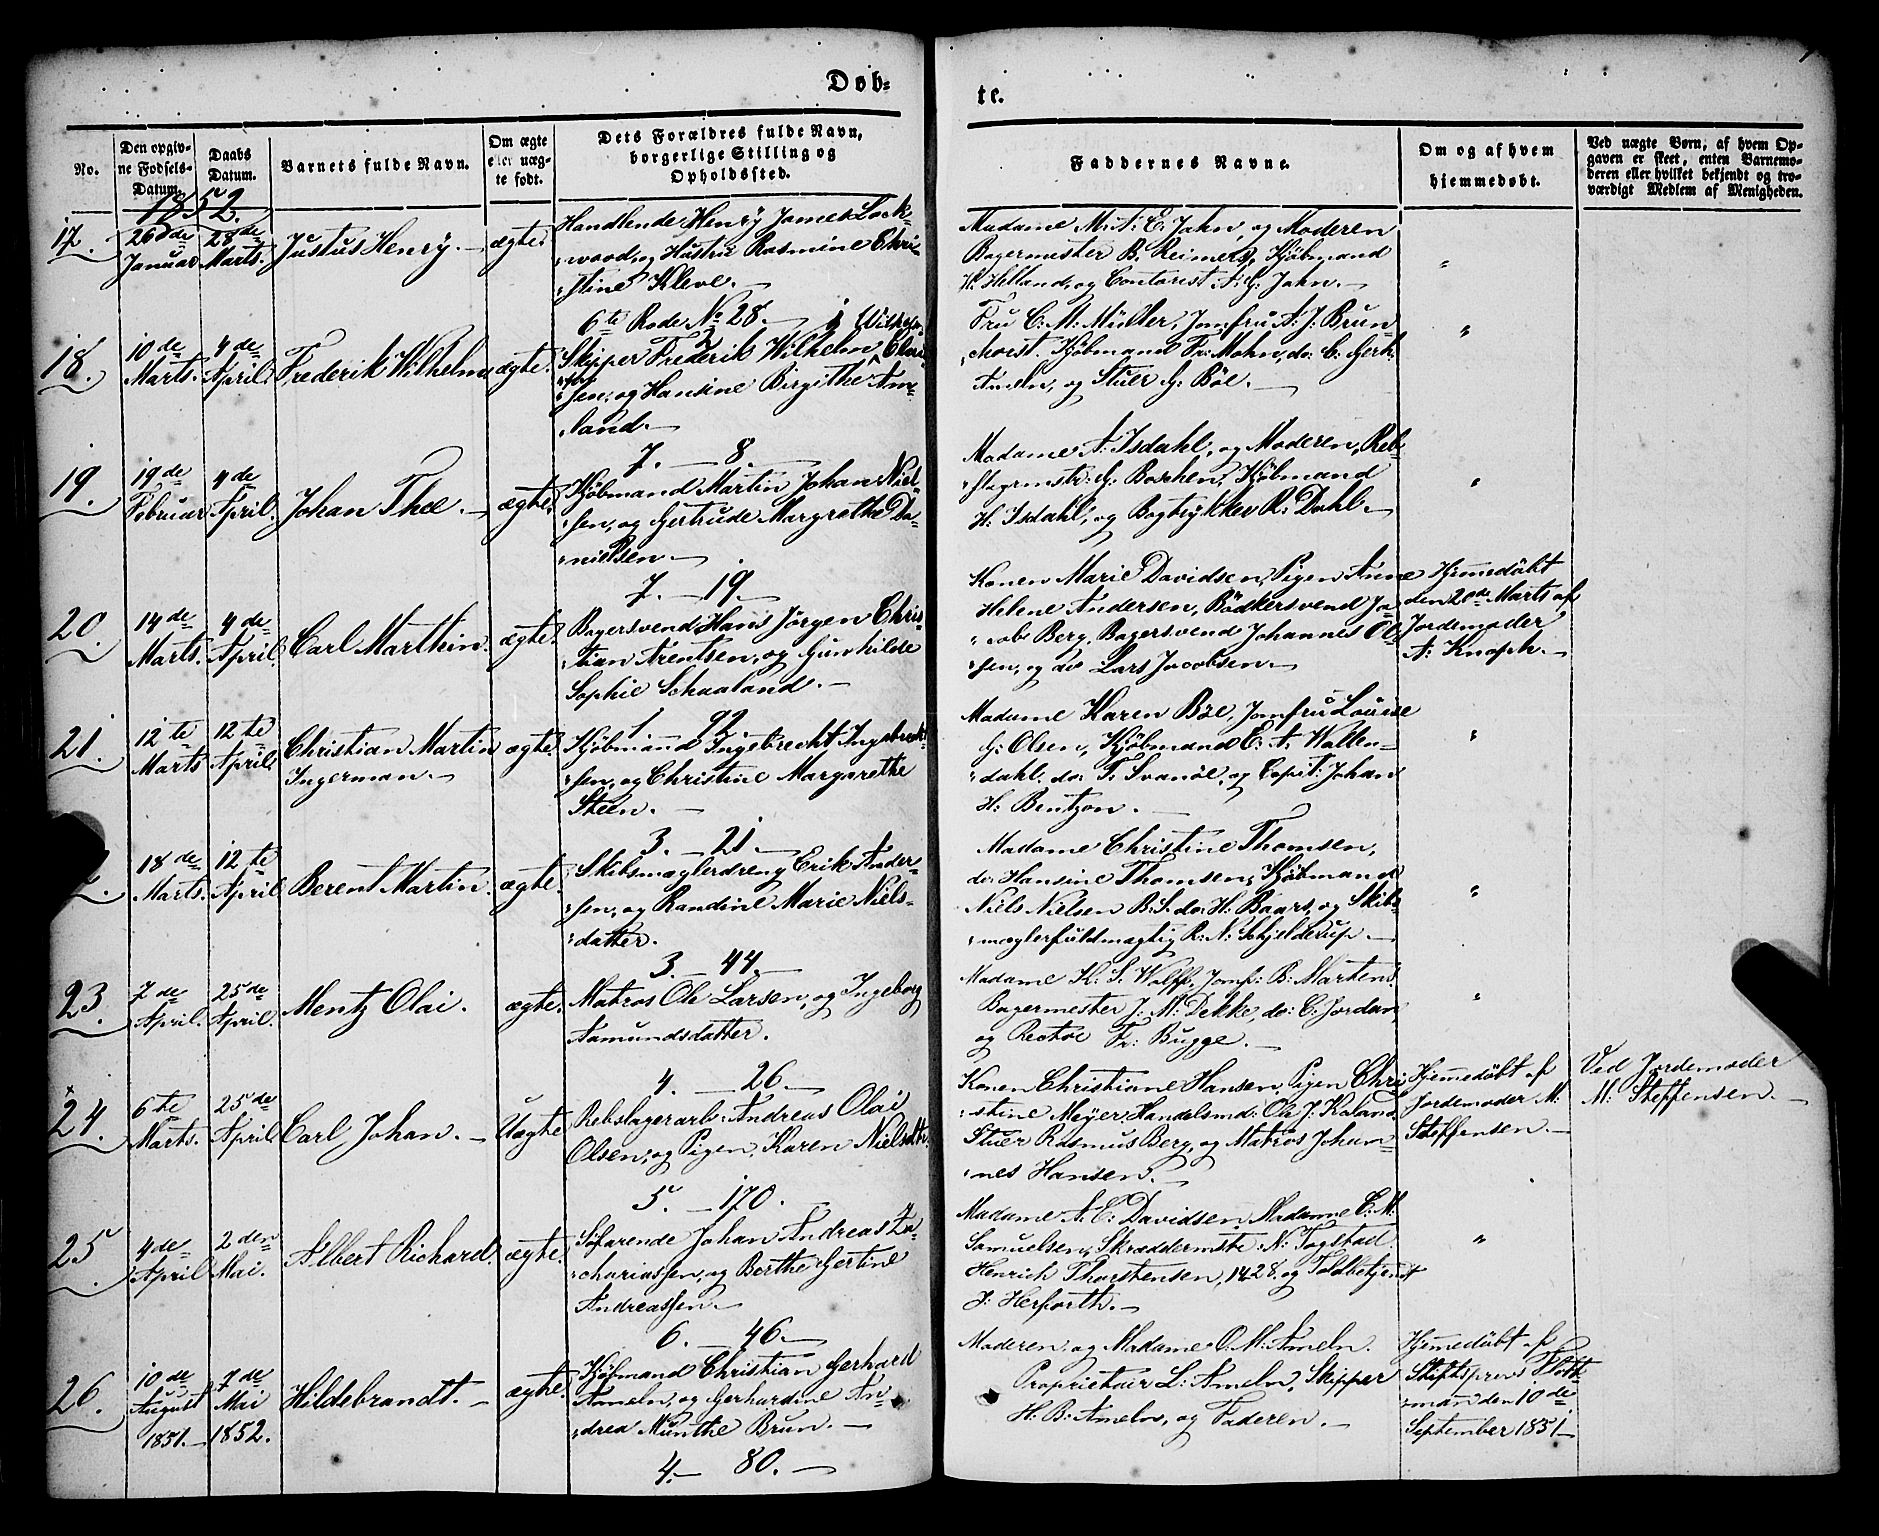 Døb-
te.
No.
Den opgiv-
ne Fødsels-
Datum.
Daabs
Datum.
Barnets fulde Navn.
Om ægte
eller uæg-
te født.
Dets Forældres fulde Navn,
borgerlige Stilling og
Opholdssted.
Faddernes Navne.
Om og af hvem
hjemmedøbt.
Ved uægte Børn, af hvem Op-
gaven er skeet, enten Barnemo-
deren eller hvilket bekjendt og tro-
værdigt Medlem af Menigheden.
1852.
17.
26de
Januar
28de
Marts.
Justus Henry.
ægte.
Handlende Henry James Lock-
wood, og Hustru Rasmine Chri-
stine Kleve.
6te Rode No 28.
Madame M: A: C: Jahn, og Moderen
Bagermester B. Reimers, Kjøbmand
H. Helland, og Contorist A: G: Jahn.
"
18.
10de
Marts.
4de
April.
Frederik Wilhelm
ægte.
Skipper Frederik Wilhelm
sen, og Hansine Birgithe Am-
land.
7. — 8.
Fru C: M: Müller, Jomfru A: J: Brun-
chorst. Kjøbmand Fr: Mohn, do: C: Gerh.
Ameln, og Stuer G: Böe.
"
19.
19de
Februar
4de
April.
Johan Thee.
ægte.
Kjöbmand Martin Johan Niel-
sen, og Gertrude Margrethe Da-
nielsen.
7. — 19.
Madame A: Isdahl, og Moderen, Reb-
slagrmstr: G: Boschen, Kjöbmand
H. Isdahl, og Bogtrykker R: Dahl.
"
20.
14de
Marts.
4de
April.
Carl Marthin.
ægte.
Bagersvend Hans Jörgen Chris-
tian Arentsen, og Gunhilde
Sophie Schaaland.
1. 92.
Konen Marie Davidsen, Pigen Anne
Helene Andersen, Bödkersvend Ja-
cob Berg, Bagersvend Johannes Ol-
sen, og do: Lars Jacobsen.
Hjemmedöbt
den 20de Marts af
Jordemoder
A: Knoph.
21.
12te
Marts
12te
April.
Christian Martin
Ingerman.
ægte.
Kjöbmand Ingebrecht Ingebrect-
sen, og Christine Margarethe
Steen.
3. — 21.
Madame Karen Böe, Jomfru Louise
G: Olsen, Kjöbmand C: A: Wallen-
dahl. do: T: Svanöe, og Capit: Johan
H: Bentzon.
"
18de
Marts.
12te
April
Berent Martin.
ægte.
Skibsmæglerdreng Erik Ander-
sen, og Randine Marie Niels-
datter.
3. — 44.
Madame Christine Thomsen,
do: Hansine Thomsen, Kjöbmand
Niels Nielsen B: S. do: H: Baars, og Skibs-
mæglerfuldmægtig R: N: Schjelderup.
"
23.
7de
April.
25de
April.
Mentz Olai.
ægte.
Matros Ole Larsen, og Ingeborg
Aamundsdatter.
4. — 26.
Madame H: S. Wolff, Jomf: B: Martens
Bagermester J: M: Dekke, do: C: Jordan,
og Rector Fr: Bugge.
"
24.
6te
Marts.
25de
April
Carl Johan.
Uægte
Rebslagerarb: Andreas Olai
Olsen, og Pigen, Karen Nielsdtr.
5. — 170.
Konen Christiane Hansen, Pigen Chri-
stine Meyer. Handelsmd: Ole J. Kaland.
Stuer Rasmus Berg, og Matros Johan-
nes Hansen.
Hjemmedöbt af
Jordemoder M:
Steffensen.
Ved Jordemoder
M: Steffensen.
25
4de
April
2den
Mai.
Albert Richard.
ægte.
Söfarende Johan Andreas Za-
chariassen, og Berthe Gertine
Andreassen.
6. — 46.
Madame A: C: Davidsen, Madame C: M:
Samuelsen, Skræddermste: N: Togstad.
Henrich Thorstensen, 1428. og Toldbetjent
J: Herforth.
"
26.
10de
August
1851.
7de
Mai
1852.
Hildebrandt.
ægte.
Kjöbmand Christian Gerhard
Ameln, og Gerhardine An-
drea Munthe Brun.
4. — 80.
Moderen og Madame O. M: Ameln.
Proprietair L: Ameln, Skipper
H: B: Ameln, og Faderen.
Hjemmedöbt af
Stiftsprovst Flott-
man den 10de
September 1851